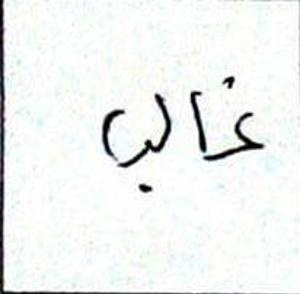 غالب